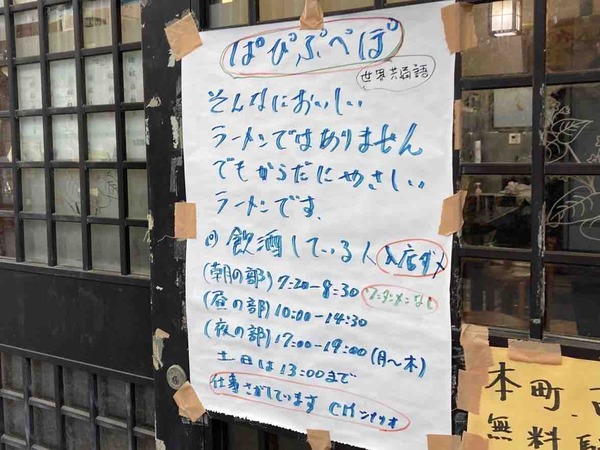 ぱぴぷぺぽ
世界共通語
そんなにおいしい
ラーメンではありません
でもからだにやさしい
ラーメンです.
◎飲酒している人入店ダメ
(朝の部) 7:20-8:30
(昼の部) 10:00-14:30
(夜の部) 17:00-19:00(月〜木)
土日は13:00まで
仕事さがしています CMソング
本町
無料